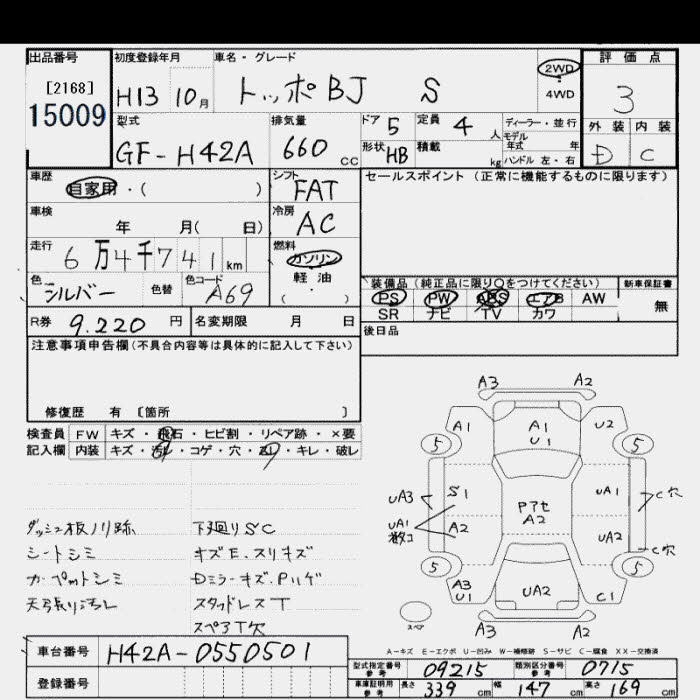 出品番号 初度登録年月 車名・グレード 評価点
[2168] H13 10月 トッポBJ S 2WD 3
15009 4WD
型式 排気量 ドア 5 定員 4人 ディーラー・並行 外装 内装
GF-H42A 660cc モデル年式 年 D C
形状 HB 積載 kg ハンドル 左・右
車歴 シフト セールスポイント (正常に機能するものに限ります)
自家用・( ) FAT
車検 冷房
年 月( 日) AC
走行 燃料
6万4千741km ガソリン
色 色替 色コード 軽油
シルバー A69 (・)
装備品 (純正品に限り○をつけてください) 新車保証書
PS PW ABS エアB AW 無
SR ナビ TV カワ
R券 9.220円 名変期限 月 日 後日品
注意事項申告欄(不具合内容等は具体的に記入して下さい)
修復歴 有 [箇所 ]
検査員 FW キズ・飛石・ヒビ割・リペア跡・×要
記入欄 内装 キズ・汚レ・コゲ・穴・・キレ・破レ
A3 A2
A1 A1 U2
5 U1 5
UA3 S1 Pアセ UA1 C穴
UA1 A2 A2 UA2 C穴
数コ
5 5
A3 UA2 C1
U1
スペア A3 A2
ダッシュ板ノリ跡 下廻りSC
シートシミ キズE.スリキズ
カーペットシミ Dミラーキズ.Pハゲ
天張り汚レ スタッドレスT
スペアT欠
A-キズ E-エクボ U-凹み W-補修跡 S-サビ C-腐食 XX-交換済
車台番号 H42A-0550501
型式指定番号 参考 09215 類別区分番号 参考 0715
登録番号
車庫証明用 参考 長さ 339cm 幅 147cm 高さ 169cm